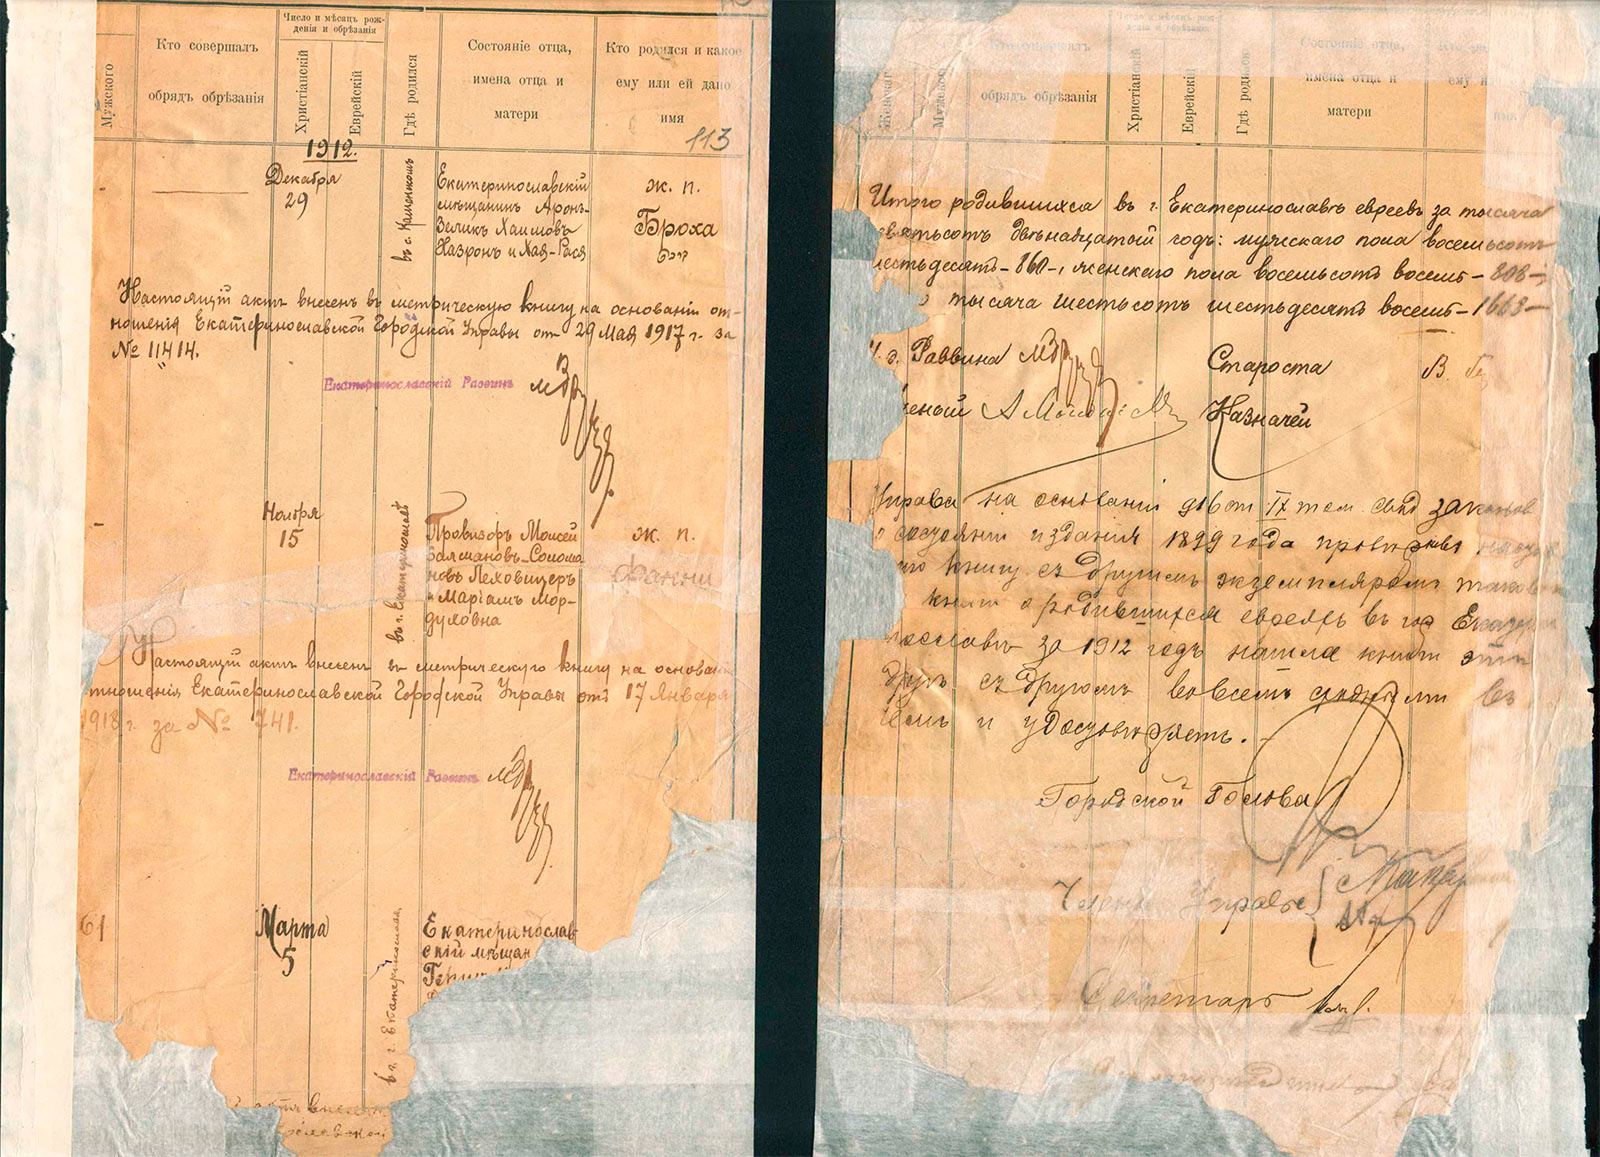 Мужского
Кто совершалъ
обрядъ обрѣзанія
Число и мѣсяцъ рож-
денія и обрѣзанія
Христіанскій
Еврейскій
Гдѣ родился
Состояніе отца,
имена отца и
матери
Кто родился и какое
ему или ей дано
имя
113
1912.
Декабря
29
въ с. Каменкомъ
Екатеринославскій
мѣщанинъ Аронъ-
Зеликъ Хаимовъ
Назронъ и Хая-Рася
ж. п.
Броха
Настоящій актъ внесенъ въ метрическую книгу на основаніи от-
ношенія Екатеринославской Городской Управы от 29 Мая 1917 г. за
№ 11414.
Екатеринославскій Раввинъ
Ноября
15
въ г. Екатеринославѣ
Провизоръ Моисей
Залмановъ-Солома
новъ Леховицеръ
и Маріамъ Мор-
духовна
ж. п.
Фанни
Настоящій актъ внесенъ въ метрическую книгу на основан
тношенія Екатеринославской Городской Управы отъ 17 Января
1918 г. за № 741.
Екатеринославскій Раввинъ
61
Марта
5
въ г. Екатеринославѣ
Екатеринослав
скій мѣщан
актъ внесен
ославской
Женскаго
Мужского
обрядъ обрѣзанія
Христіанскій
Еврейскій
Гдѣ родился
Состояніе отца,
имена отца и
матери
ему и
имя
Итого родившихся въ г. Екатеринославѣ евреевъ за тысяча
девятьсотъ двѣнадцатый годъ: мужского пола восемьсотъ
шестьдесятъ - 860 -, женскаго пола восемьсотъ восемь - 808 -,
тысяча шестьсотъ шестьдесятъ восемь - 1668 -
Раввина
Староста
В.
Казначей
Управа на основаніи 916 ст. IX том. Свод законов
о состояніи изданія 1899 года провѣривъ настоя
книгу съ другимъ экземпляромъ таков
книги о родившихся евреяхъ въ гор Екатери
нославѣ за 1912 годъ нашла книги эти
другъ съ другомъ во всемъ сходными въ
чемъ и удостовѣряетъ.
Городской Голова
Члены Управы
Секретарь